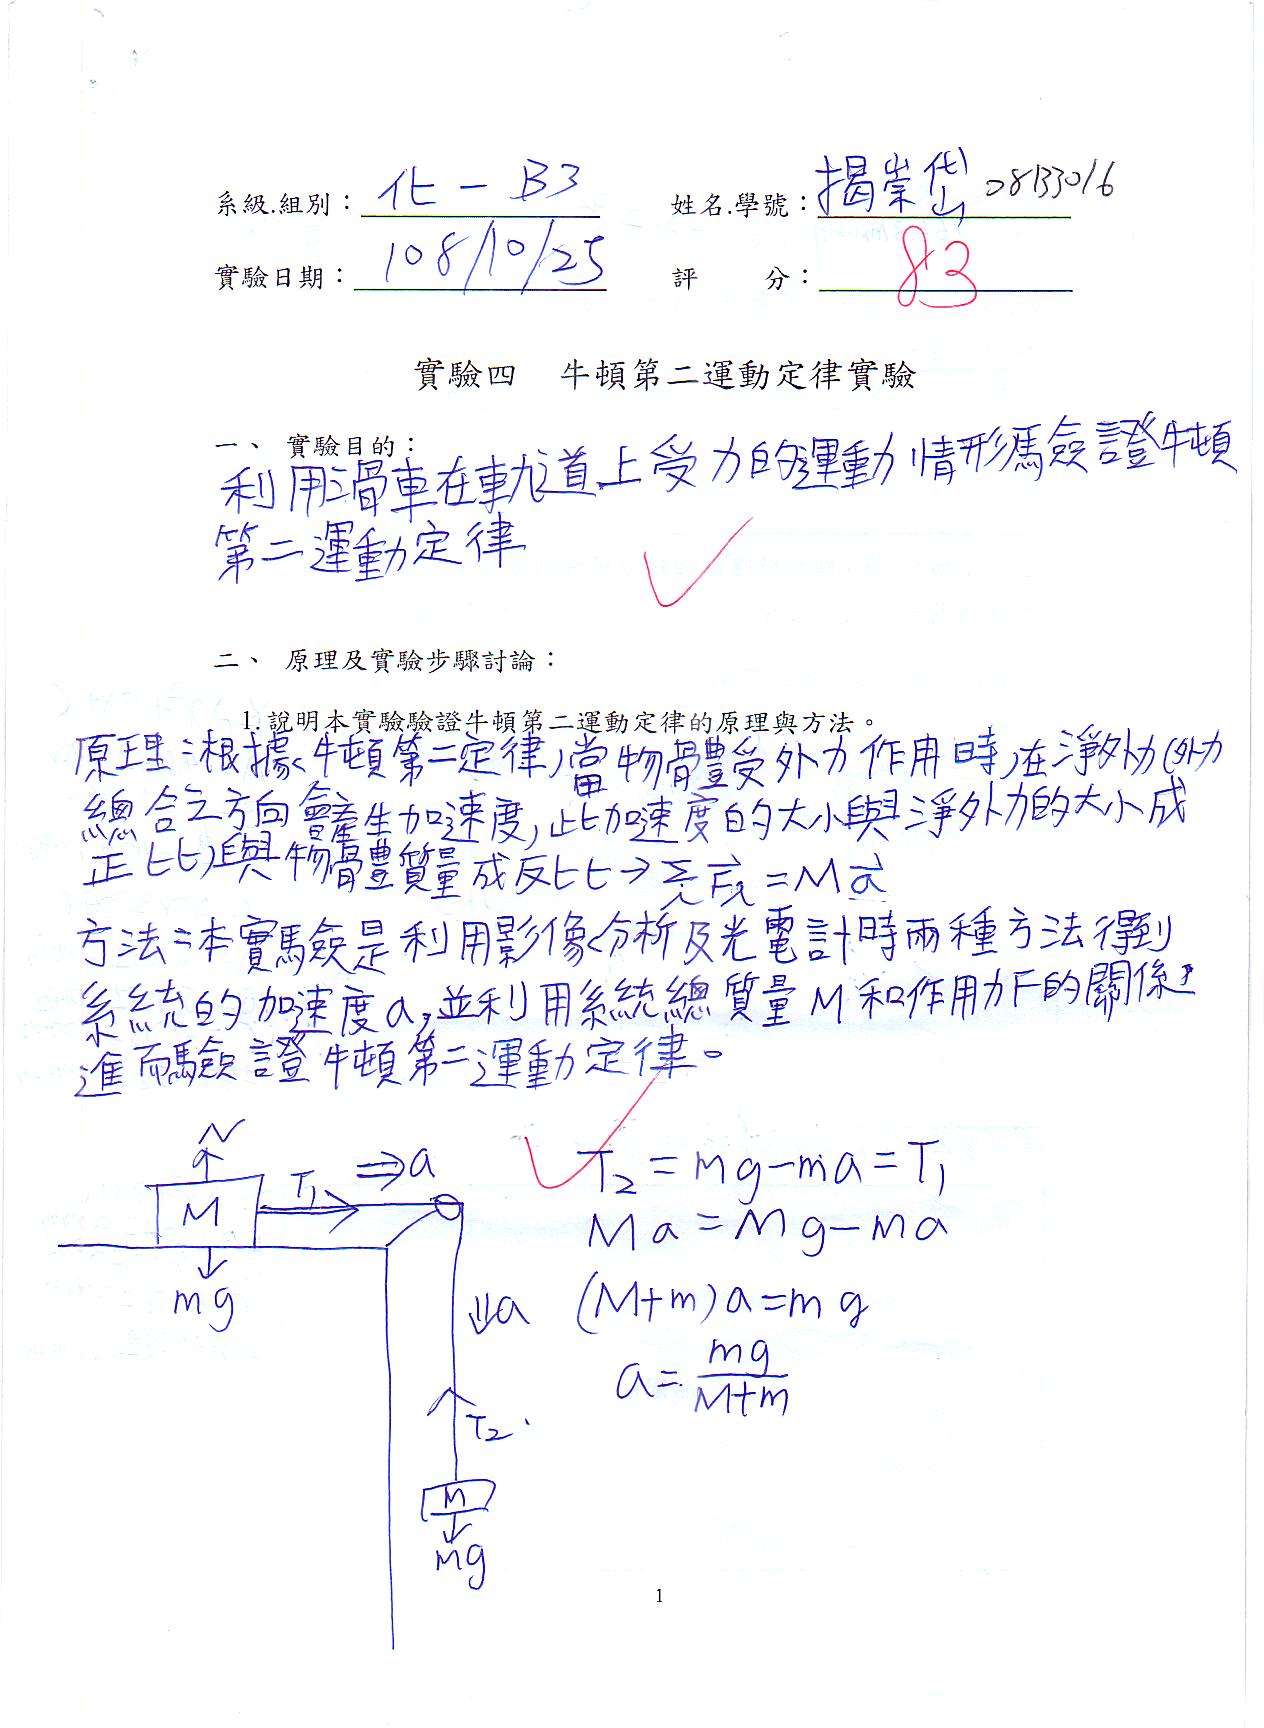 系級.組別：化一 B3 姓名.學號：揭崇岱 08133016
實驗日期：108/10/25 評 分：83
實驗四 牛頓第二運動定律實驗
一、 實驗目的：
利用滑車在軌道上受力的運動情形驗證牛頓
第二運動定律
二、 原理及實驗步驟討論：
1.說明本實驗驗證牛頓第二運動定律的原理與方法。
原理：根據牛頓第二定律，當物體受外力作用時，在淨外力(外力
總合之方向會產生加速度，此加速度的大小與淨外力的大小成
正比)與物體質量成反比→ΣF⃗ᵢ=Ma⃗
方法：本實驗是利用影像分析及光電計時兩種方法得到
系統的加速度a，並利用系統總質量M和作用力F的關係
進而驗證牛頓第二運動定律。
N
T₁ ⇒a
M
mg
⇓a
T₂
M
mg
T₂=mg-ma=T₁
Ma=Mg-ma
(M+m)a=mg
a=mg/M+m
1